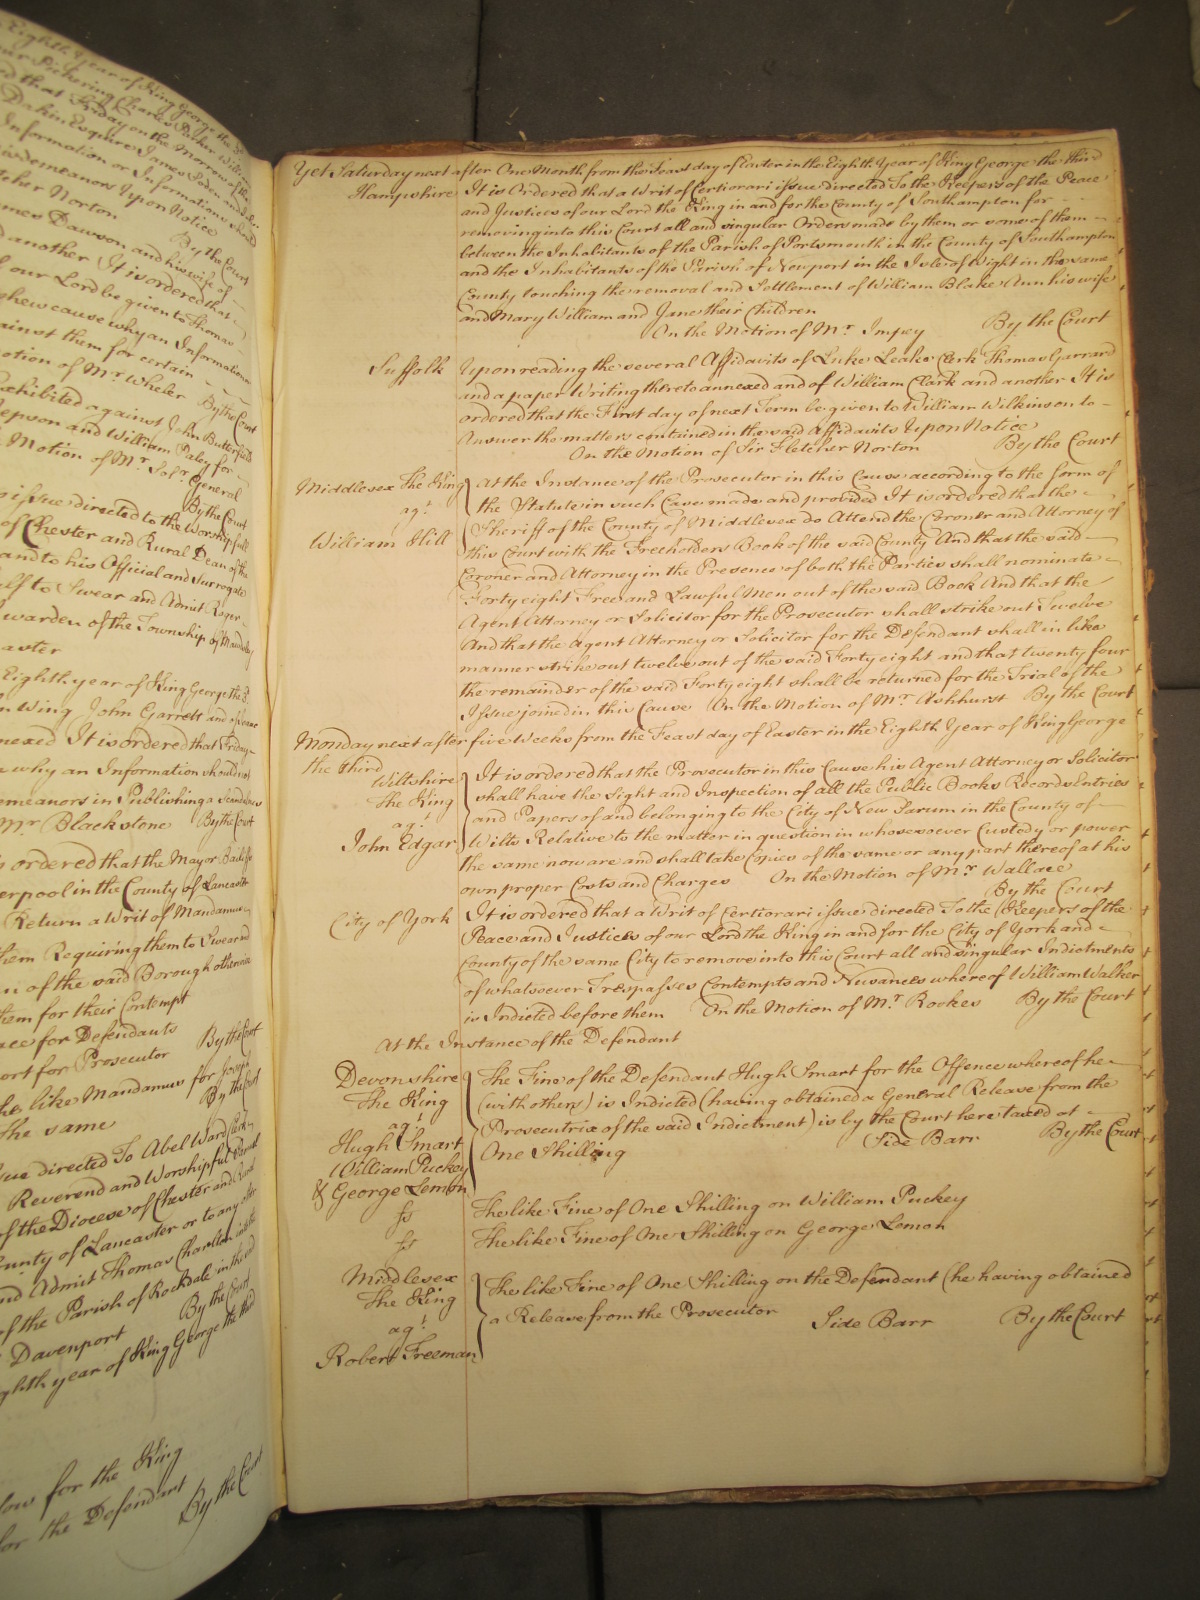 Eighth Year of King George the
that Friday on the Morrow of
Dakin Esquire James Soden and
Information or Informations should
Misdemeanors Upon Notice
Fletcher Norton By the Court
James Dawson and his wife of
another It is ordered that
our Lord be given to Thomas
shew cause why an Information
against them for certain
Motion of Mr. Wheler By the Court
exhibited against John Butterfield
Jepson and William Paley for
Motion of Mr. Solr. General
By the Court
issue directed to the Worshipfull
of Chester and Rural Dean of the
and to his Official and Surrogate
to Swear and Admit Roger
warden of the Township of
Eighth year of King George the 3d.
Wing John Garrett and
annexed It is ordered that Friday
why an Information should not
Misdemeanors in Publishing a Scandalous
Mr. Blackstone By the Court
ordered that the Mayor Bailiffs
Liverpool in the County of Lancaster
Return a Writ of Mandamus
them Requiring them to Swear and
of the said Borough otherwise
them for their Contempt
for Defendants
for Prosecutor By the Court
the like Mandamus for Joseph
The same By the Court
issue directed To Abel Ward Clerk
Reverend and Worshipful
of the Diocese of Chester and Rural
County of Lancaster or to any other
and Admit Thomas Charlton into the
of the Parish of Rochdale in the said
Davenport By the Court
Eighth year of King George the third
for the King
for the Defendant By the Court
Yet Saturday next after One Month from the Feast day of Easter in the Eighth Year of King George the third
Hampshire It is Ordered that a Writ of Certiorari issue directed To the Keepers of the Peace
and Justices of our Lord the King in and for the County of Southampton for
removing into this Court all and singular Orders made by them or some of them
between the Inhabitants of the Parish of Portsmouth in the County of Southampton
and the Inhabitants of the Parish of Newport in the Isle of Wight in the same
County touching the removal and Settlement of William Blake Ann his wife
and Mary William and Jane their Children
On the Motion of Mr. Impey By the Court
Suffolk Upon reading the several Affidavits of Luke Leake Clerk Thomas Garrard
and a paper Writing thereto annexed and of William Clark and another It is
ordered that the First day of next Term be given to William Wilkinson to
Answer the matters contained in the said Affidavits Upon Notice
On the Motion of Sir Fletcher Norton By the Court
Middlesex The King At the Instance of the Prosecutor in this Cause according to the form of
agt. the Statute in such Case made and provided It is ordered that the
William Hill Sheriff of the County of Middlesex do Attend the Coroner and Attorney of
this Court with the Freeholders Book of the said County And that the said
Coroner and Attorney in the Presence of both the Parties shall nominate
Forty eight Free and Lawful Men out of the said Book And that the
Agent Attorney or Solicitor for the Prosecutor shall strike out Twelve
And that the Agent Attorney or Solicitor for the Defendant shall in like
manner strike out twelve out of the said Forty eight and that twenty four
the remainder of the said Forty eight shall be returned for the Trial of the
Issue joined in this Cause On the Motion of Mr. Ashhurst By the Court
Monday next after five Weeks from the Feast day of Easter in the Eighth Year of King George
the third
Wiltshire It is ordered that the Prosecutor in this Cause his Agent Attorney or Solicitor
The King shall have the Sight and Inspection of all the Public Books Records Entries
agt. and Papers of and belonging to the City of New Sarum in the County of
John Edgar Wilts Relative to the matter in question in whosesoever Custody or power
the same now are and shall take Copies of the same or any part thereof at his
own proper Costs and Charges On the Motion of Mr. Wallace
By the Court
City of York It is ordered that a Writ of Certiorari issue directed To the Keepers of the
Peace and Justices of our Lord the King in and for the City of York and
County of the same City to remove into this Court all and singular Indictments
of whatsoever Trespasses Contempts and Nusances whereof William Walker
is Indicted before them On the Motion of Mr. Rookes By the Court
At the Instance of the Defendant
Devonshire The Fine of the Defendant Hugh Smart for the Offence whereof he
The King (with others) is Indicted (having obtained a General Release from the
agt. Prosecutrix of the said Indictment) is by the Court here taxed at
Hugh Smart One Shilling Side Barr By the Court
William Puckey
& George Lemon
ss The like Fine of One Shilling on William Puckey
ss The like Fine of One Shilling on George Lemon
Middlesex The like Fine of One Shilling on the Defendant (he having obtained
The King a Release from the Prosecutor Side Barr By the Court
agt.
Robert Freeman